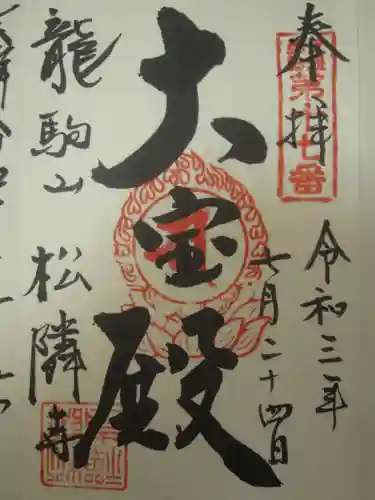 奉拝
第十七番
令和三年
七月二十四日
大宝殿
龍駒山
松隣寺